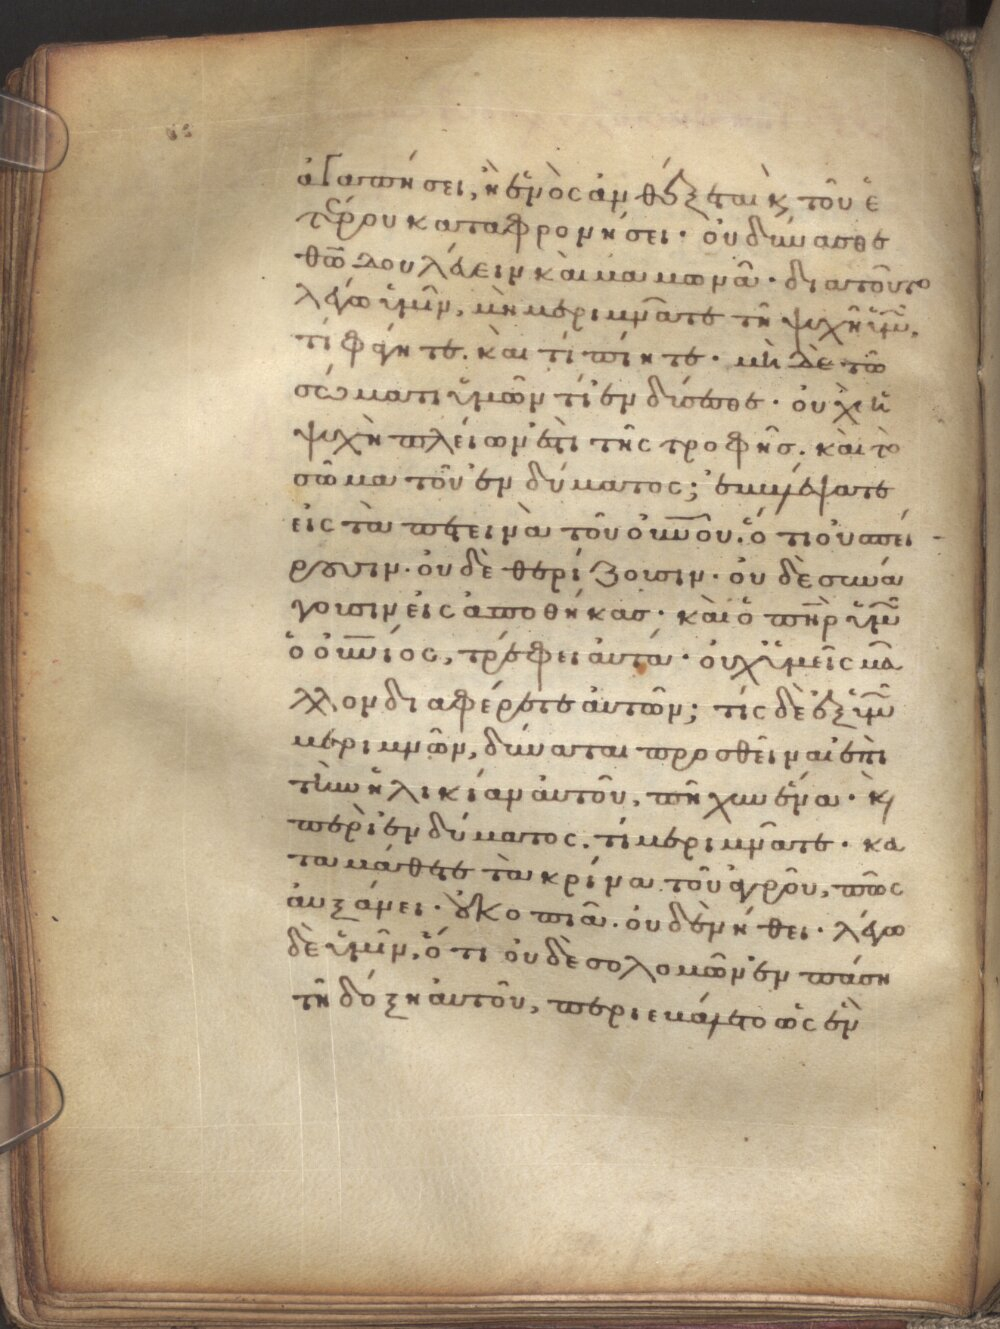 ἀγαπήσει, ἢ ἑνὸς ἀνθέξεται κ τοῦ ἑ
τέρου καταφρονήσει· οὐ δύνασθε
θω δουλεύειν καὶ μαμωνᾶ· διατοῦτο
λέγω ὑμῖν, μὴ μεριμνᾶτε τῆ ψυχῆ ὑμῶν,
τί φάγητε. καὶ τί πίητε· μὴ δὲ τῶ
σώματι ὑμῶν τί ἐνδύσησθε· οὐχὶ ἡ
ψυχὴ πλείων ἐστι τῆς τροφῆς. καὶ τὸ
σῶμα τοῦ ἐνδύματος; ἐμβλέψατε
εἰς τὰ πετεινὰ τοῦ οὐνοῦ. ὅτι οὐ σπεί
ρουσιν· οὐδὲ θερίζουσιν· οὐδὲ συνά
γουσιν εἰς ἀποθήκας· καὶ ὁ πηρ ὑμῶν
ὁ οὐνιος, τρέφει αὐτά· οὐχ ὑμεῖς μᾶ
λλον διαφέρετε αὐτῶν; τίς δὲ ἐξ ὑμῶν
μεριμνῶν, δύναται προσθεῖναι ἐπὶ
τὴν ἡλικίαν αὐτοῦ, πῆχυν ἕνα· κ
περὶ ἐνδύματος. τί μεριμνᾶτε· κα
ταμάθετε τὰ κρίνα τοῦ ἀγροῦ, πῶς
αὐξάνει· οὐ κοπιᾶ· οὐδὲ νήθει· λέγω
δὲ ὑμῖν, ὅτι οὐδὲ σολομῶν ἐν πάση
τῆ δόξη αὐτοῦ, περιεβάλετο ὡς ἓν